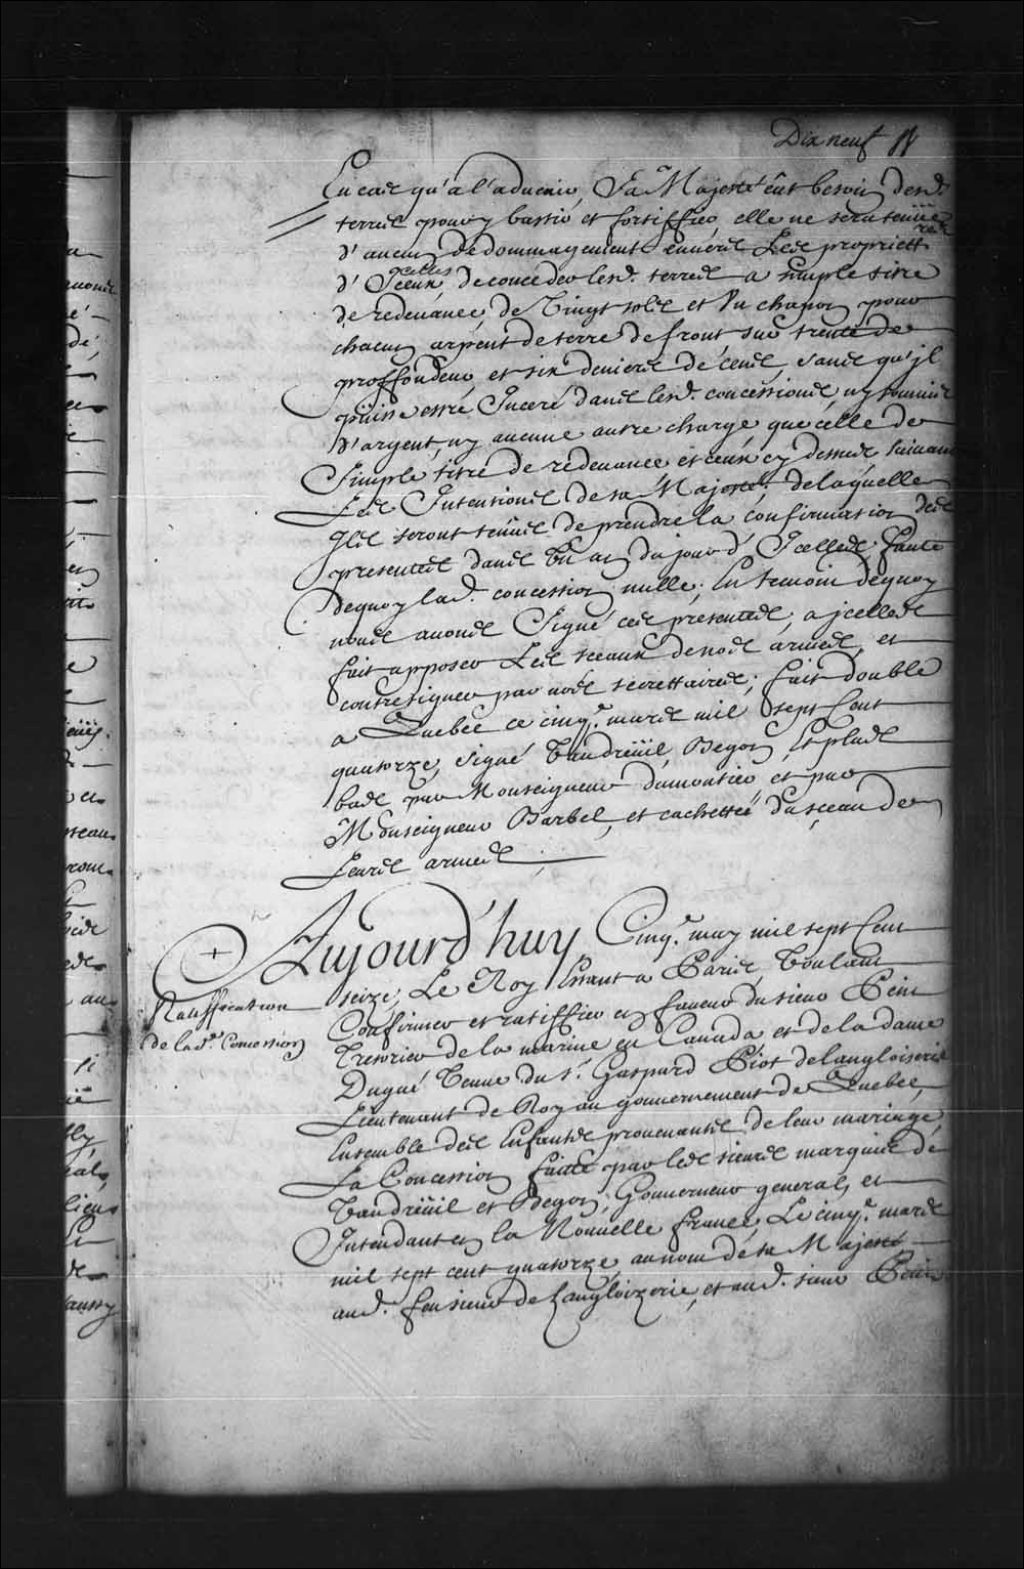 Dix neuf
En cas qu'a l'aduenir, Sa Majesté eût besoin desd.
terres pour y bastir et fortiffier, elle ne sera tenüe
d'aucun dedommagement enuers Les propriett.res
d'Iceux celles de conceder lesd. terres a simple titre
de redeuance, de Vingt sols et Vn chapon pour
chacun arpent de terre de front, sur trente de
proffondeur, et six deniers de cens, sans qu'jl
puisse estre Inceré dans lesd. concessions, ny somme
d'argent, ny aucune autre charge que celle de
Simple titre de redeuance, et ceux cy dessus suiuant
Les Intentions de sa Majesté, de laquelle
Ils seront tenüs de prendre la confirmation des
presentes dans Vn an du jour d'Icelles, faute
dequoy lad. concession nulle; En temoin dequoy
nous auons Signé ces presentes, a jcelles
fait apposer Les sceaux de nos armes, et
contresigner par nos secrettaires; fait double
a Quebec ce cinq.e mars mil sept Cent
quatorze, signé Vaudreüil, Begon, Et plus
bas par Monseigneur Dumontier et par
Monseigneur Barbel, et cachettée du sceau de
Leurs armes,
+ Aujourd'huy Cinq.e may mil sept Cent
seize, Le Roy Estant a Paris, Voulant
Ratiffication
de lad.e Concession
Confirmer et ratiffier en faueur du sieur Petit
Tresorier de la marine en Canada et de la dame
Dugué Veuue du S.r Gaspard Piot de Langloiserie
Lieutenant de Roy au gouuernement de Quebec,
Ensemble des Enfants prouenants de leur mariage,
La Concession faitte par les sieurs marquis de
Vaudreüil et Begon, Gouuerneur general, et
Intendant en la Nouuelle france, Le cinq.e mars
mil sept cent quatorze, au nom de sa Majesté
aud. feu sieur de Langloizerie, et aud. sieur Petit